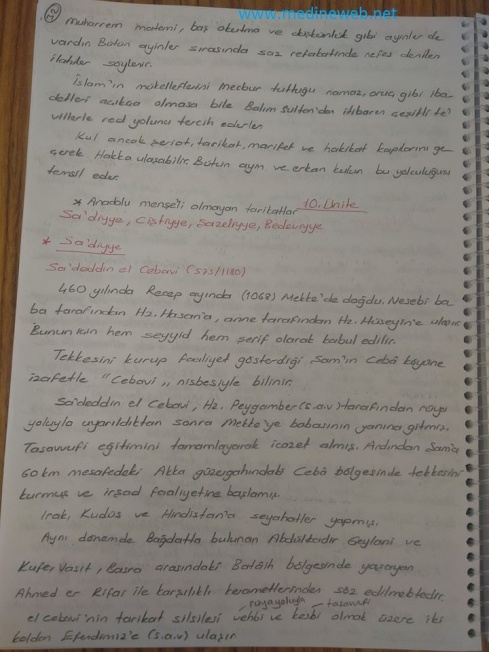 www.medineweb.net
32
muharrem matemi, baş okutma ve düşkünlük gibi ayinler de
vardır. Bütün ayinler sırasında saz refakatinde nefes denilen
ilahiler söylenir.
İslam'ın mükelleflerini mecbur tuttuğu namaz, oruç gibi iba-
detleri açıkça olmasa bile Balım Sultan'dan itibaren çeşitli te'
villerle red yolunu tercih ederler.
Kul ancak şeriat, tarikat, marifet ve hakikat kapılarını ge-
çerek Hakka ulaşabilir. Bütün ayin ve erkan kulun bu yolculuğunu
temsil eder.
* Anadolu menşe'li olmayan tarikatlar 10. Ünite
Sa'diyye, Çiştiyye, Şazeliyye, Bedeviyye
* Sa'diyye
Sa'deddin el Cebavi (575/1180)
460 yılında Recep ayında (1068) Mekke'de doğdu. Nesebi ba-
ba tarafından Hz. Hasan'a, anne tarafından Hz. Hüseyin'e ulaşır.
Bunun için hem seyyid hem şerif olarak kabul edilir.
Tekkesini kurup faaliyet gösterdiği Şam'ın Cebâ köyüne
izafetle "Cebavi" nisbesiyle bilinir.
Sa'deddin el Cebavi, Hz. Peygamber (s.a.v) tarafından rüya
yoluyla uyarıldıktan sonra Mekke'ye babasının yanına gitmiş.
Tasavvufi eğitimini tamamlayarak icazet almış. Ardından Şam'a
60 km mesafedeki Akka güzergahındaki Cebâ bölgesinde tekkesini
kurmuş ve irşad faaliyetine başlamış.
Irak, Kudüs ve Hindistan'a seyahatler yapmış.
Aynı dönemde Bağdatta bulunan Abdülkadir Geylani ve
Kufe, Vasıt, Basra arasındaki Batâih bölgesinde yaşayan
Ahmed er Rifai ile karşılıklı kerametlerinden söz edilmektedir.
rüya yoluyla tasavvufi
el Cebavi'nin tarikat silsilesi vehbi ve kesbi olmak üzere iki
koldan Efendimiz'e (s.a.v) ulaşır.